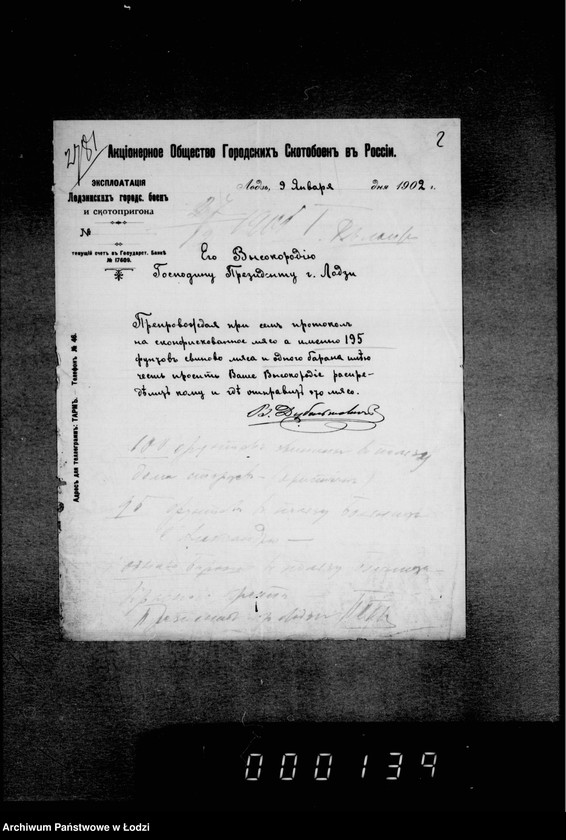 2781
2
Акціонерное Общество Городскихъ Скотобоенъ въ Россіи.
ЭКСПЛОАТАЦІЯ
Лодзинскихъ городс. боенъ
и скотопригона
№
текущій счетъ въ Государст. Банкѣ
№ 17609.
Лодзь, 9 Января дня 1902 г.
Его Высокородію
Господину Президенту г. Лодзи
Препровождая при семъ протоколъ
на сконфискованное мясо а именно 195
фунтовъ свиново мяса и одного барана имѣю
честь просить Ваше Высокородіе распре-
дѣлить кому и гдѣ отправить это мясо.
Адресъ для телеграммъ: ТАРМЪ. — Телефонъ № 46.
100 фунтовъ свинины въ пользу
дома
95 фунтовъ въ пользу больницы
одного барана въ пользу
Президентъ г. Лодзи
000139
Archiwum Państwowe w Łodzi